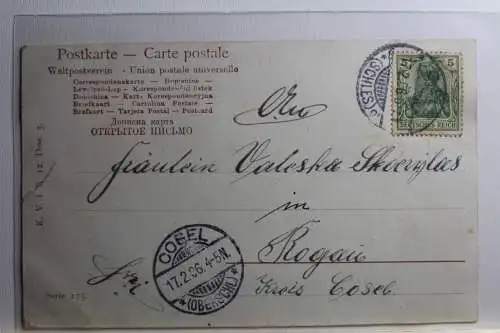 Postkarte — Carte postale
Weltpostverein - Union postale universelle
Correspondenzkarte - Dopisnice
Levelező-Lap - Korespondenční lístek
Dopisnica - Karta Korespondencyjna
Briefkaart - Cartolina Postale
Brefkort - Tarjeta Postal - Postcard
Дописна карта
ОТКРЫТОЕ ПИСЬМО
5
DEUTSCHES REICH
An
Fräulein Valeska
in
Rogau
Kreis Cosel.
COSEL
17.2.06. 4-5N.
*(OBERSCHL)*
Frei
Serie 175